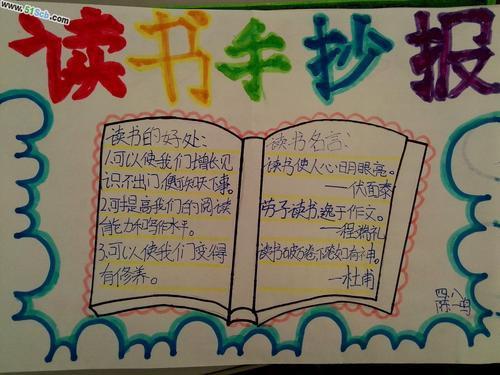 www.51Scb.com
读书手抄报
读书的好处:
1.可以使我们增长见
识,不出门,便可知天下事。
2.可提高我们的阅读
能力和写作水平。
3.可以使我们变得
有修养。
读书名言:
读书使人心明眼亮。
—伏尔泰
劳于读书,逸于作文。
—程端礼
读书破万卷,下笔如有神。
—杜甫
四八